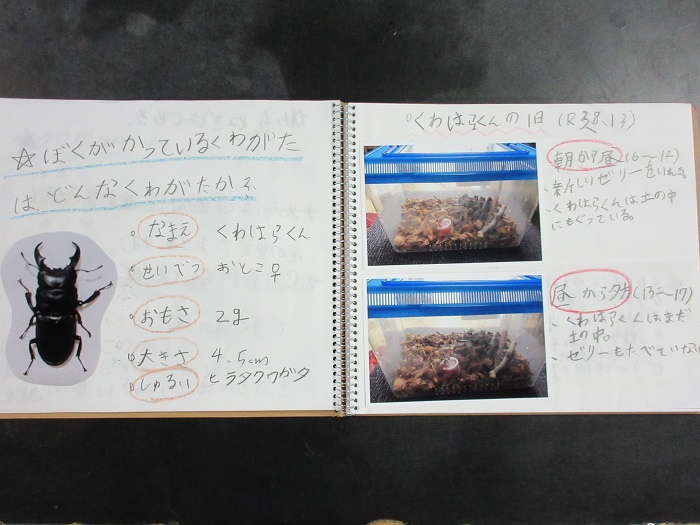 ☆ぼくがかっているくわがた
はどんなくわがたかな
○なまえ くわはらくん
○せいべつ おとこ♀
○おもさ 2g
○大きさ 4.5cm
○しゅるい ヒラタクワガタ
○くわはらくんの1日 (R3.8.13)
朝から昼(6〜12)
・新しいゼリーを
・くわはらくんは土の中
にもぐっている。
昼から夕(13〜17)
・くわはらくんはまだ
土の中。
・ゼリーもたべていない